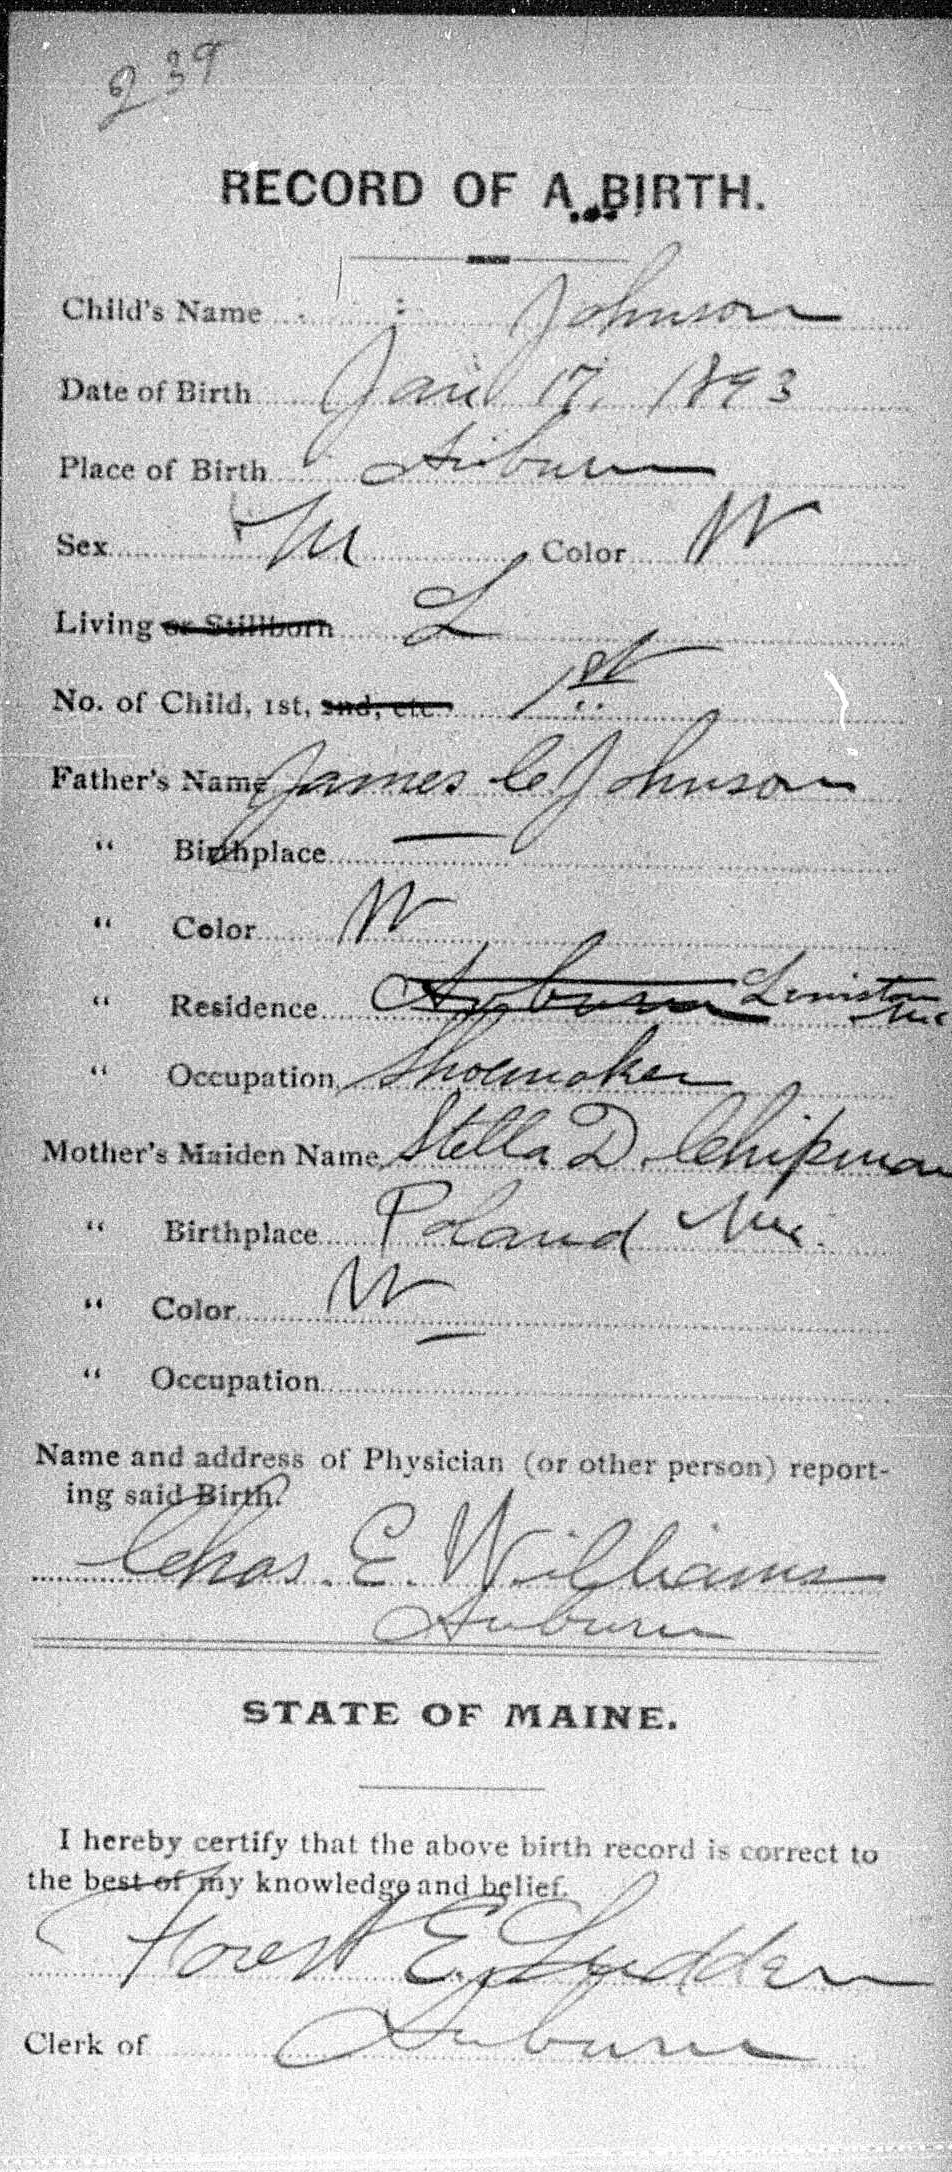 239
RECORD OF A BIRTH.
Child's Name Johnson
Date of Birth Jan 17, 1893
Place of Birth Auburn
Sex M Color W
Living or Stillborn L
No. of Child, 1st, 2nd, etc. 1st
Father's Name James C Johnson
" Birthplace —
" Color W
" Residence Auburn Lewiston Me
" Occupation Shoemaker
Mother's Maiden Name Stella D. Chipman
" Birthplace Poland Me.
" Color W
" Occupation —
Name and address of Physician (or other person) report-
ing said Birth.
Chas. E. Williams
Auburn
STATE OF MAINE.
I hereby certify that the above birth record is correct to
the best of my knowledge and belief.
Forest E. Ludden
Clerk of Auburn